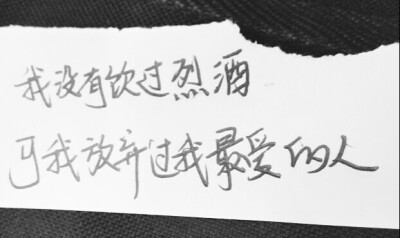 我没有饮过烈酒
可我放弃过我最爱的人